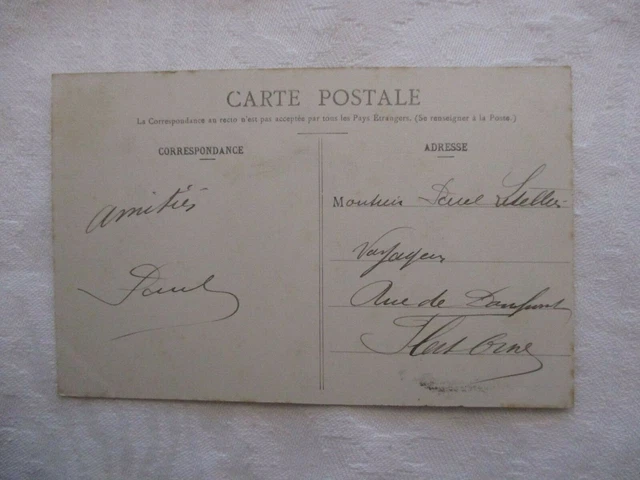 CARTE POSTALE
La Correspondance au recto n'est pas acceptée par tous les Pays Etrangers. (Se renseigner à la Poste.)
CORRESPONDANCE
amitiés
Paul
ADRESSE
Monsieur Paul Letellier
Voyageur
Rue de Domfront
Flers Orne